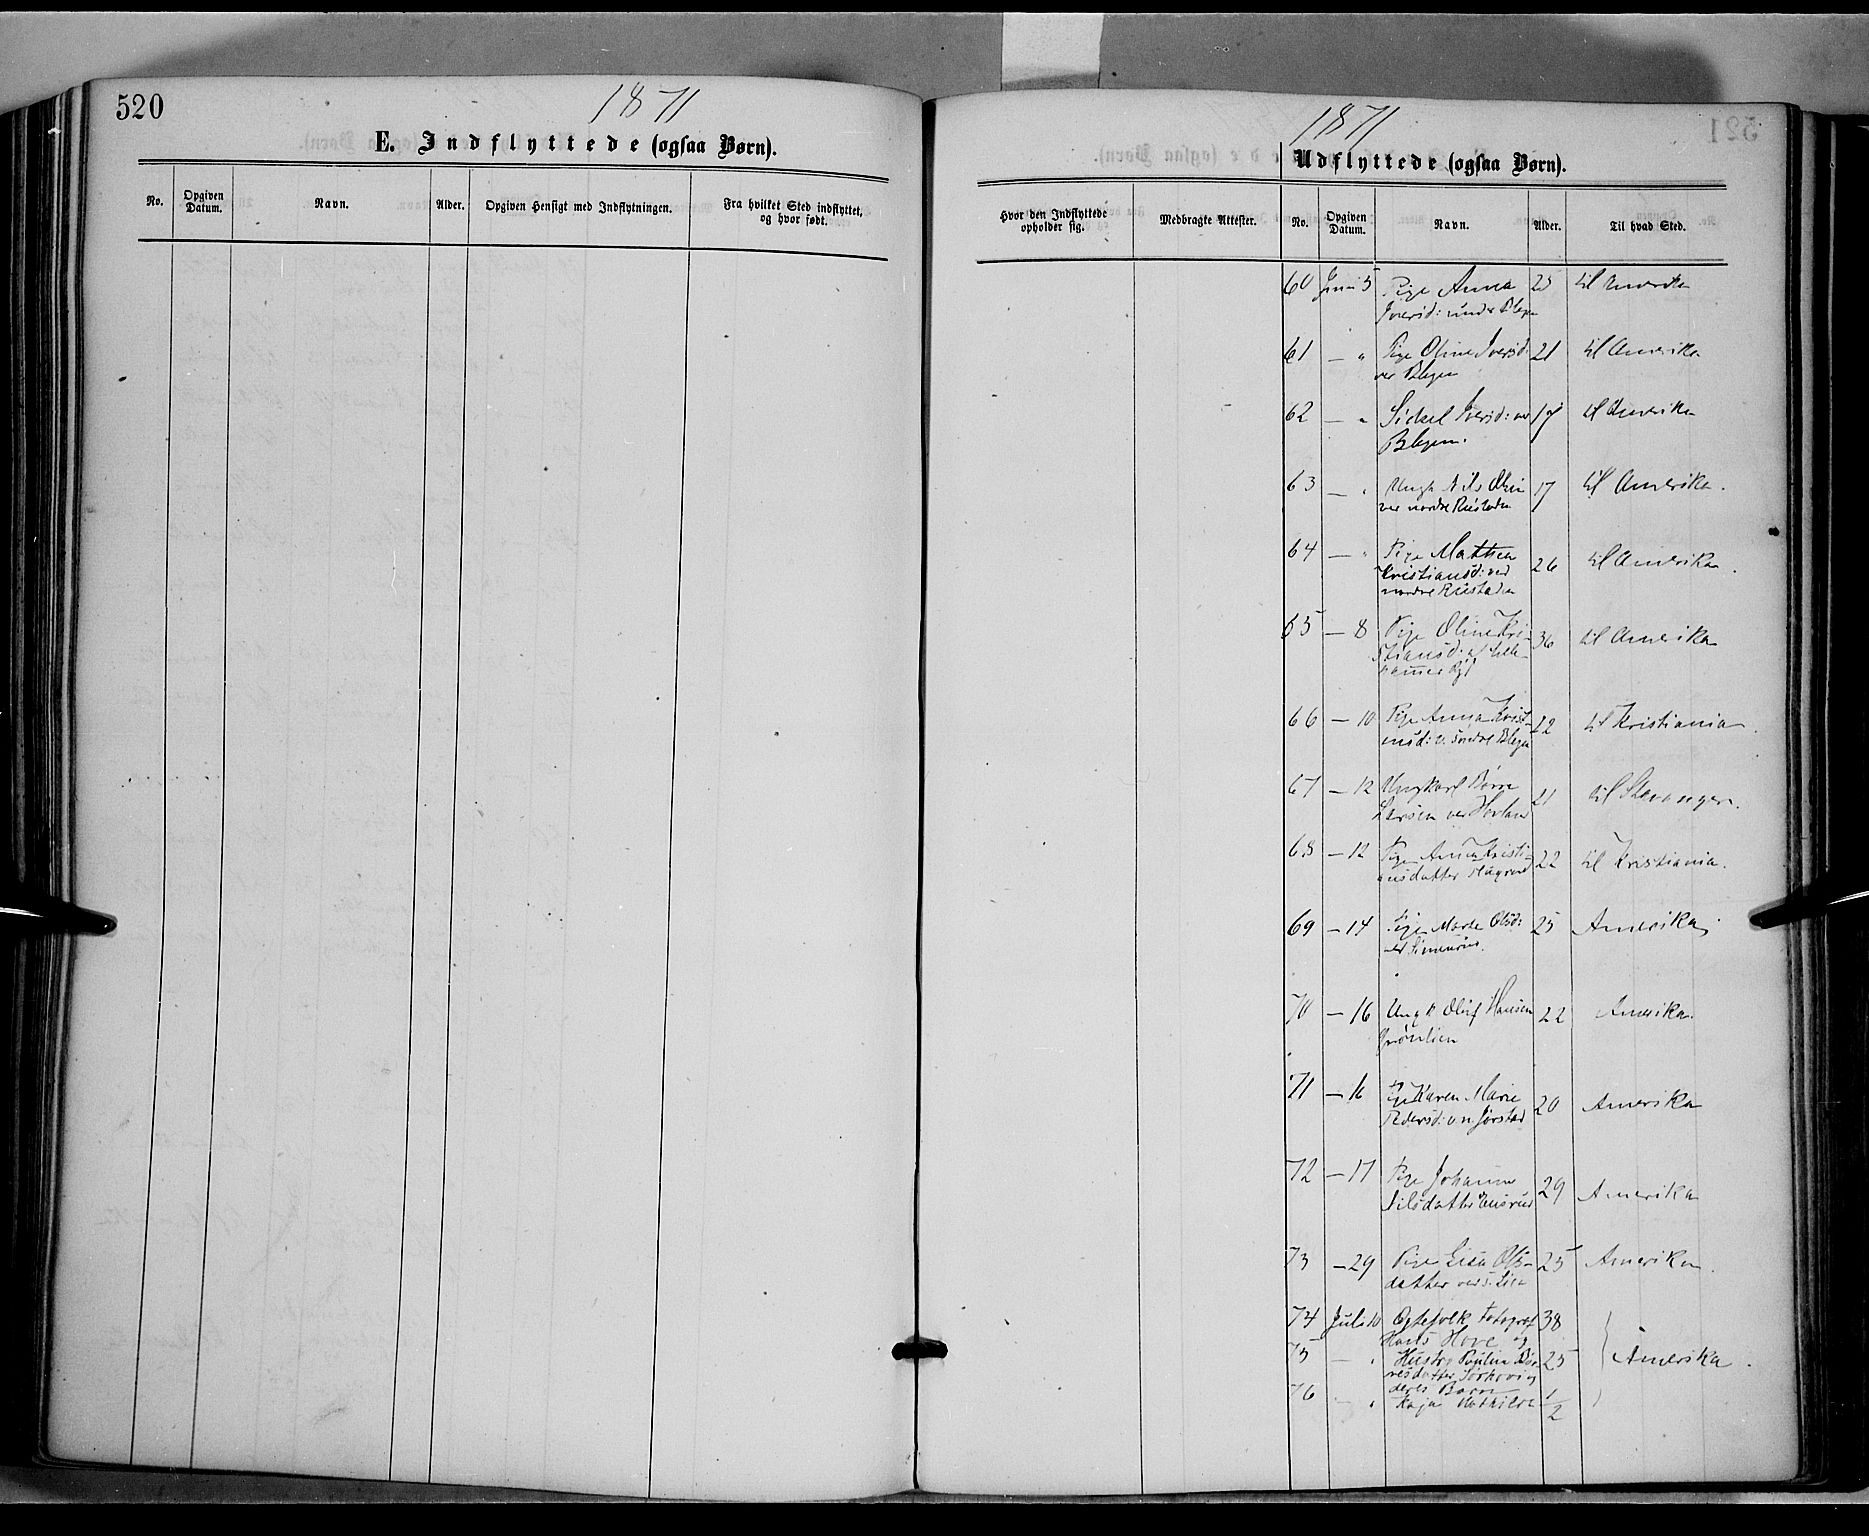 520
1871
E. Indflyttede (ogsaa Børn).
No.
Opgiven Datum.
Navn.
Alder.
Opgiven Hensigt med Indflytningen.
Fra hvilket Sted indflyttet, og hvor født.
1871
521
Udflyttede (ogsaa Børn).
Hvor den Indflyttede opholder sig.
Medbragte Attester.
No.
Opgiven Datum.
Navn.
Alder.
Til hvad Sted.
60 Juni 5 Pige Anna 25 til Amerika
Iversd: under Blegen
61 — " Pige Oline Iversd: 21 til Amerika
ver Blegen
62 — " Sidsel Iversd: ver 19 til Amerika
Blegen.
63 — " Ungk Nils Olsen 17 til Amerika.
ver nordre Rustaden
64 — " Pige Mathea 26 til Amerika.
Kristiansd: ved
nordre Rustaden
65 — 8 Pige Oline Kri- 36 til Amerika
stiansd: af Lille-
hammer By
66 — 10 Pige Anna Krist- 22 til Kristiania.
ensd: v. søndre Blegen
67 — 12 Ungkarl Børre 21 til Stavanger.
Larsen ver
68 — 12 Pige Anna Kristi- 22 til Kristiania.
ansdatter
69 — 14 Pige Marte Olsd: 25 Amerika.
ved
70 — 16 Ungk Oluf Hansen 22 Amerika.
Grønlien
71 — 16 Pige Karen Marie 20 Amerika
Pedersd: v. n. Jørstad
72 — 17 Pige Johanne 29 Amerika
Nilsdatter
73 — 29 Pige Lisa Ols- 25 Amerika.
datter ver s. Lien
74 Juli 10 Egtefolk Fotograf 38
Hans Hove og
75 — " Hustry Paulin Bør- 25 Amerika.
resdatter og
deres Barn
76 — " Kaja Mathilde 1/2